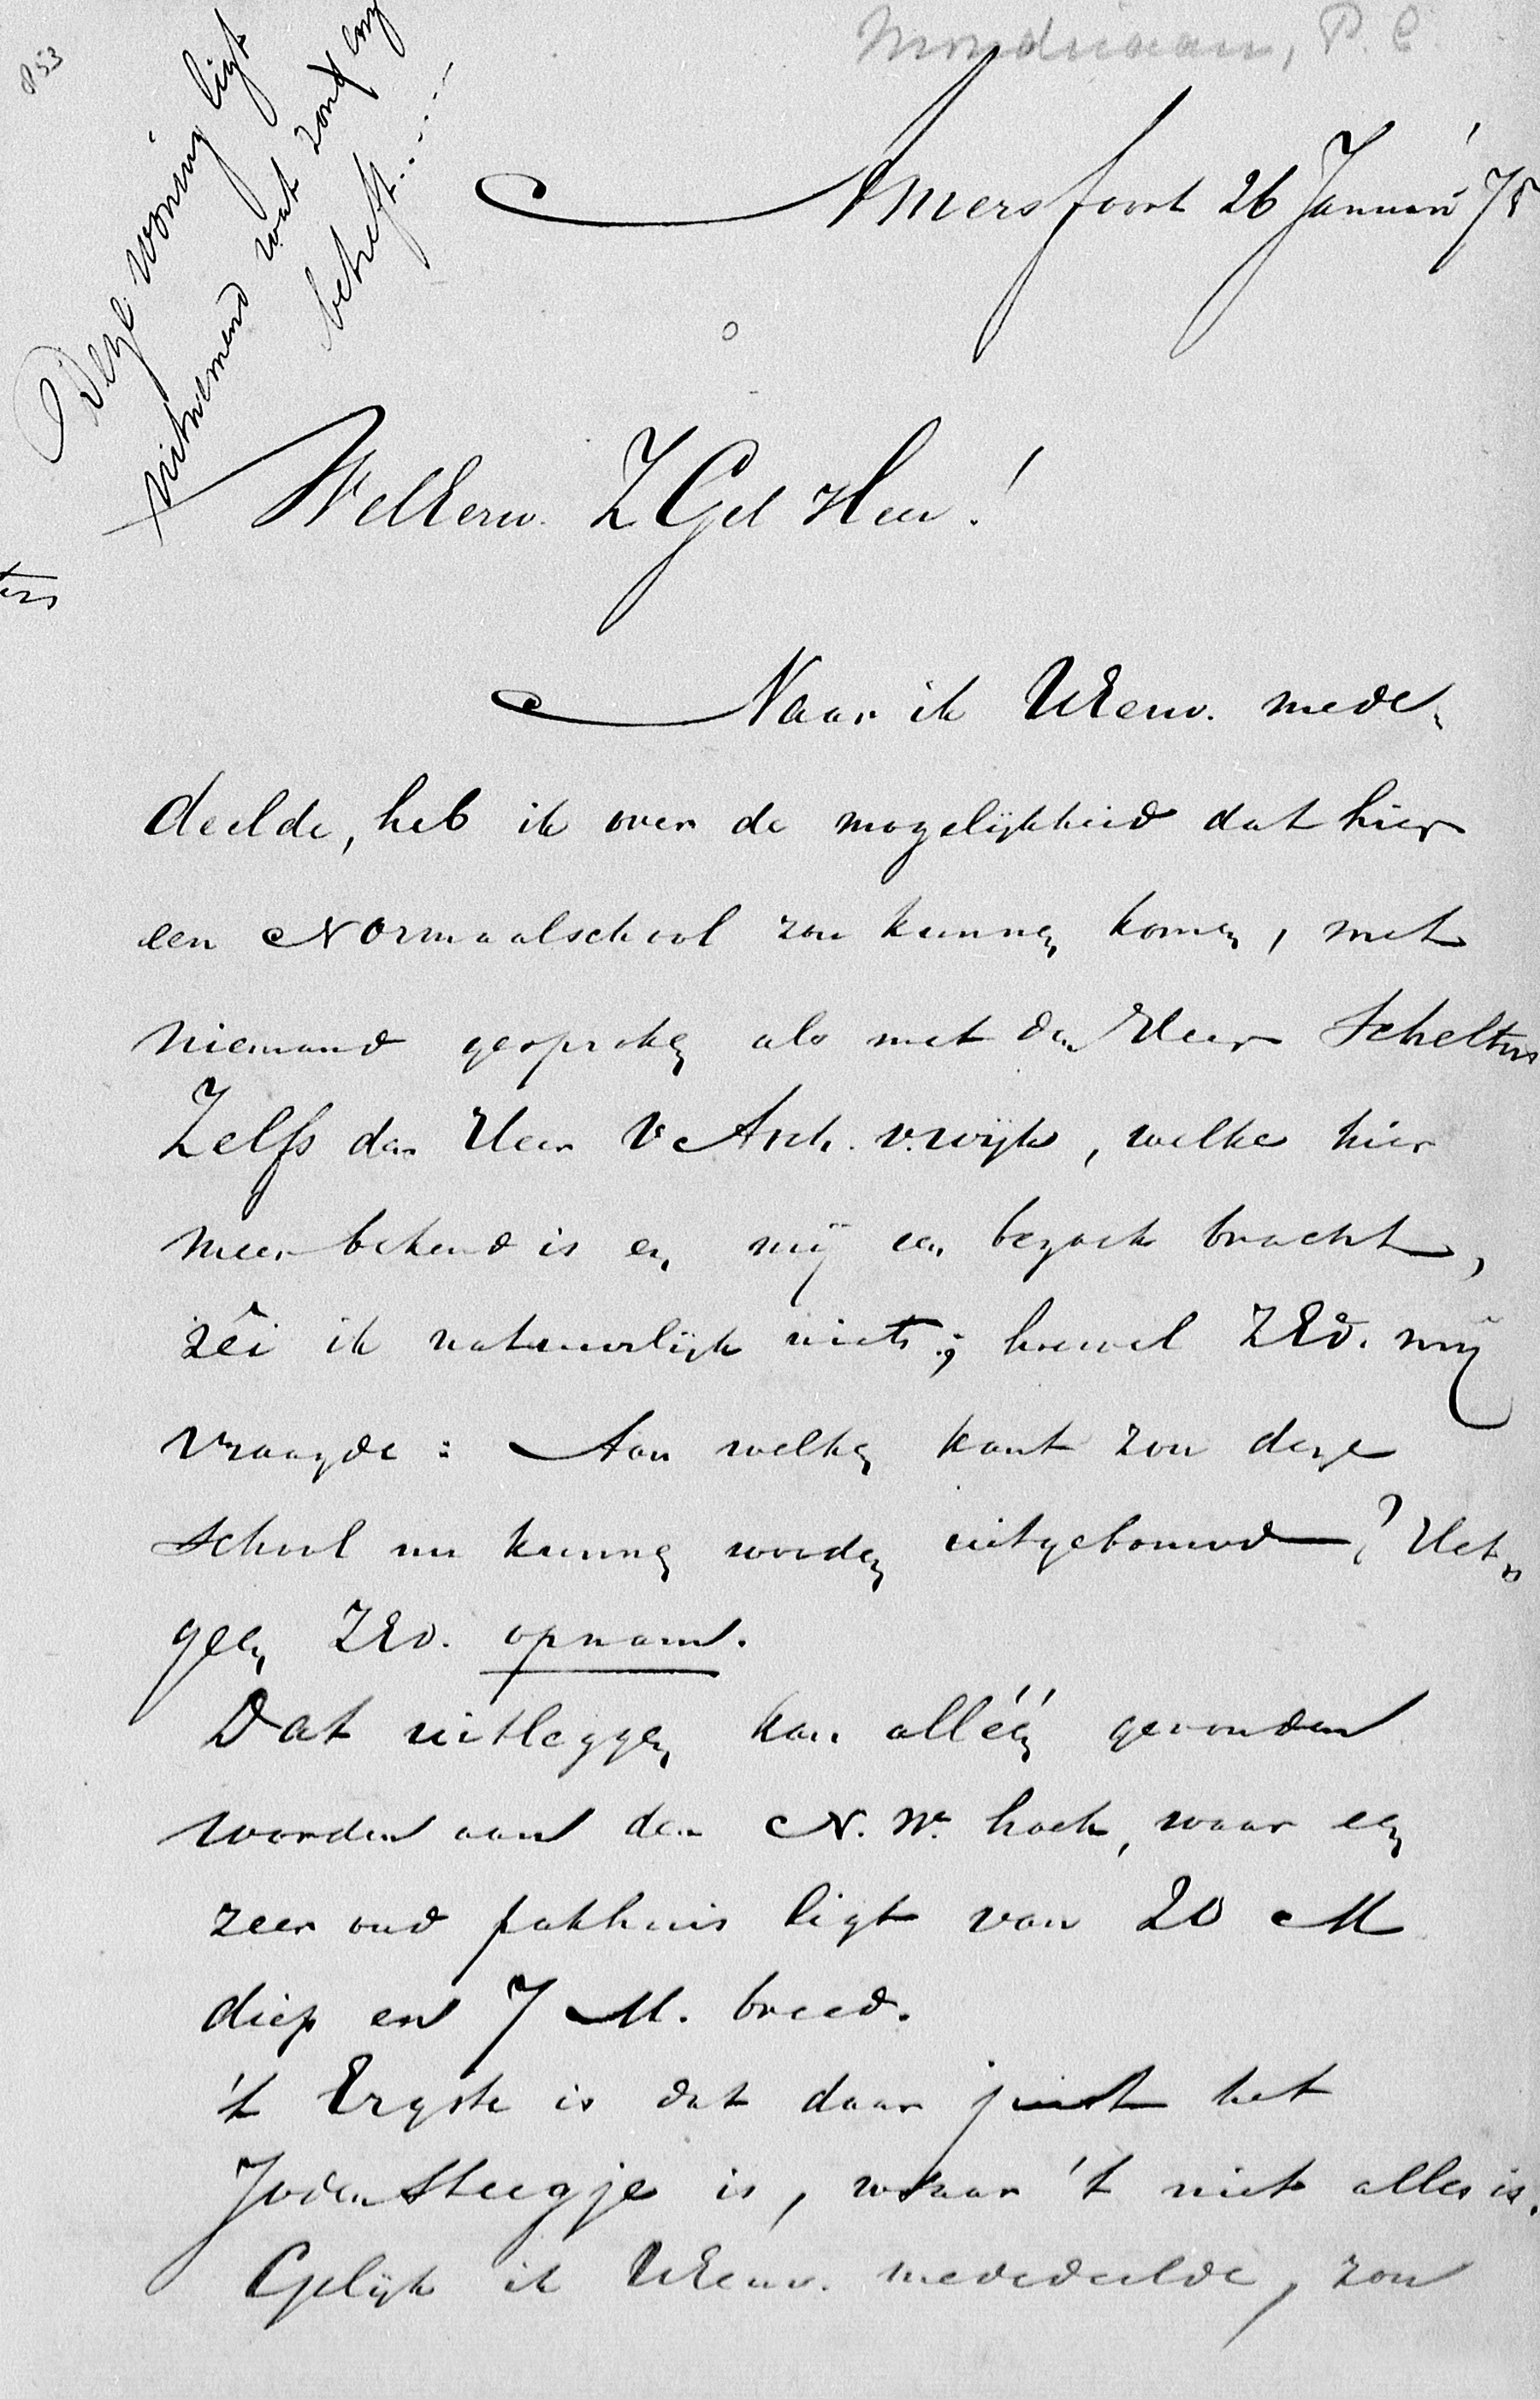 853
Mondriaan, P. C
Deze woning ligt
uitnemend wat zon
betreft.....
Amersfoort 26 Januari '78
WelEerw. ZGel Heer!
Naar ik UEerw. mede-
deelde, heb ik over de mogelijkheid dat hier
een Normaalschool zou kunnen komen, met
niemand gesproken als met den Heer Schelters
Zelfs den Heer v Asch. v. Wijk, welke hier
meer bekend is en mij een bezoek bracht,
zêi ik natuurlijk niets; hoewel ZEd. mij
vraagde: Aan welken kant zou deze
School nu kunnen worden uitgebouwd? Het-
geen ZEd. opnam.
Dat uitleggen kan alléén gevonden
worden aan den N. W. hoek, waar een
zeer oud pakhuis ligt van 20 M
diep en 7 M. breed.
't Ergste is dat daar juist het
Joden Steegje is, waar 't niet alles is.
Gelijk ik UEerw. mededeelde, zou